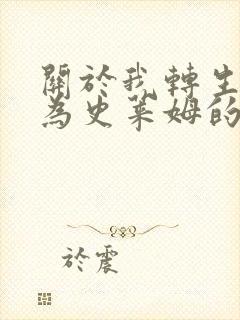 關於我轉生
為史萊姆的
於震